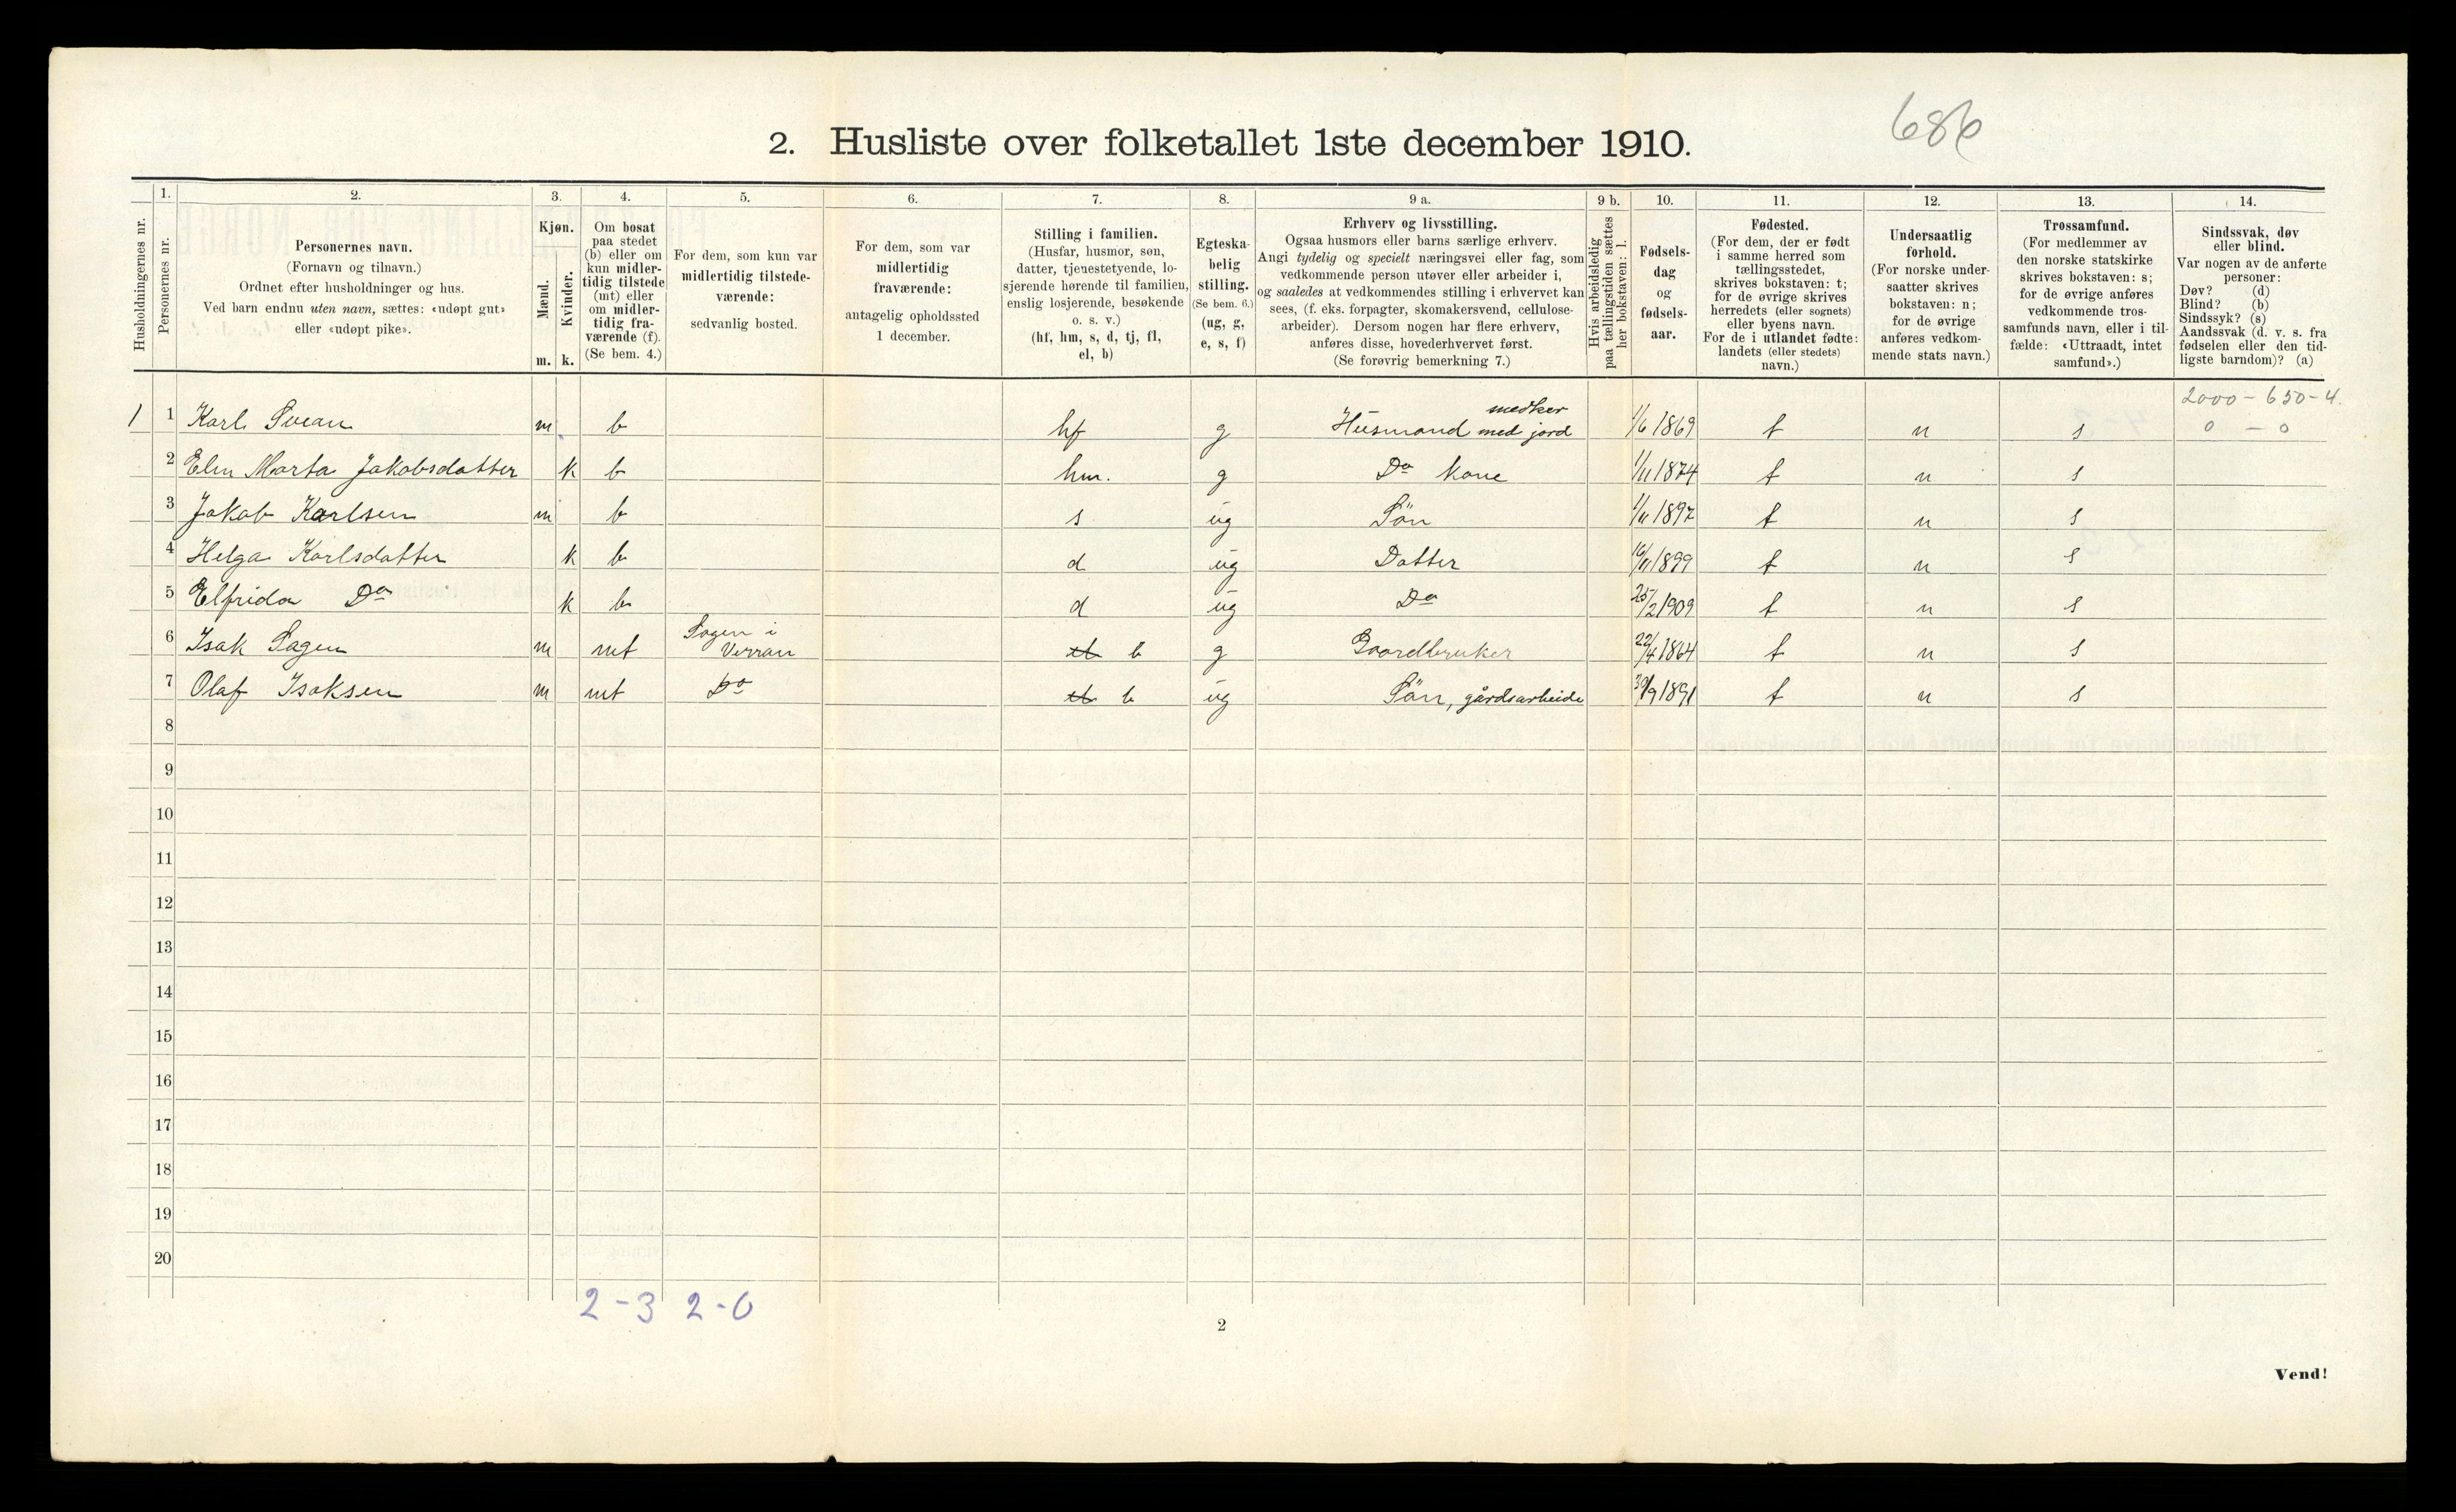 686
2. Husliste over folketallet 1ste december 1910.
Husholdningernes nr.
1.
Personernes nr.
2.
Personernes navn.
(Fornavn og tilnavn.)
Ordnet efter husholdninger og hus.
Ved barn endnu uten navn, sættes: «udøpt gut»
eller «udøpt pike».
3.
Kjøn.
Mænd.
Kvinder.
m. k.
4.
Om bosat
paa stedet
(b) eller om
kun midler-
tidig tilstede
(mt) eller
om midler-
tidig fra-
værende (f).
(Se bem. 4.)
5.
For dem, som kun var
midlertidig tilstede-
værende:
sedvanlig bosted.
6.
For dem, som var
midlertidig
fraværende:
antagelig opholdssted
1 december.
7.
Stilling i familien.
(Husfar, husmor, søn,
datter, tjenestetyende, lo-
sjerende hørende til familien,
enslig losjerende, besøkende
o. s. v.)
(hf, hm, s, d, tj, fl,
el, b)
8.
Egteska-
belig
stilling.
(Se bem. 6.)
(ug, g,
e, s, f)
9 a.
Erhverv og livsstilling.
Ogsaa husmors eller barns særlige erhverv.
Angi tydelig og specielt næringsvei eller fag, som
vedkommende person utøver eller arbeider i,
og saaledes at vedkommendes stilling i erhvervet kan
sees, (f. eks. forpagter, skomakersvend, cellulose-
arbeider). Dersom nogen har flere erhverv,
anføres disse, hovederhvervet først.
(Se forøvrig bemerkning 7.)
9 b.
Hvis arbeidsledig
paa tællingstiden sættes
her bokstaven: l.
10.
Fødsels-
dag
og
fødsels-
aar.
11.
Fødested.
(For dem, der er født
i samme herred som
tællingsstedet,
skrives bokstaven: t;
for de øvrige skrives
herredets (eller sognets)
eller byens navn.
For de i utlandet fødte:
landets (eller stedets)
navn.)
12.
Undersaatlig
forhold.
(For norske under-
saatter skrives
bokstaven: n;
for de øvrige
anføres vedkom-
mende stats navn.)
13.
Trossamfund.
(For medlemmer av
den norske statskirke
skrives bokstaven: s;
for de øvrige anføres
vedkommende tros-
samfunds navn, eller i til-
fælde: «Uttraadt, intet
samfund».)
14.
Sindssvak, døv
eller blind.
Var nogen av de anførte
personer:
Døv? (d)
Blind? (b)
Sindssyk? (s)
Aandssvak (d. v. s. fra
fødselen eller den tid-
ligste barndom)? (a)
2000 - 650 - 4.
0 - 0
1 1 Karl Svean m b hf g Husmand med jord 1/6 1869 t n s
2 Marta Jakobsdatter k b hm. g Do kone 1/11 1874 t n s
3 Jakob Karlsen m b s ug Sön 1/11 1897 t n s
4 Helga Karlsdatter k b d ug Datter 16/11 1899 t n s
5 Elfrida Do k b d ug Do 25/2 1909 t n s
6 Isak Sagen m mt Sagen i Verran b g Gaardbruker 22/4 1864 t n s
7 Olaf Isaksen m mt Do b ug Sön, gårdsarbeide 30/9 1891 t n s
8
9
10
11
12
13
14
15
16
17
18
19
20
2 - 3 2 - 0
2
Vend!